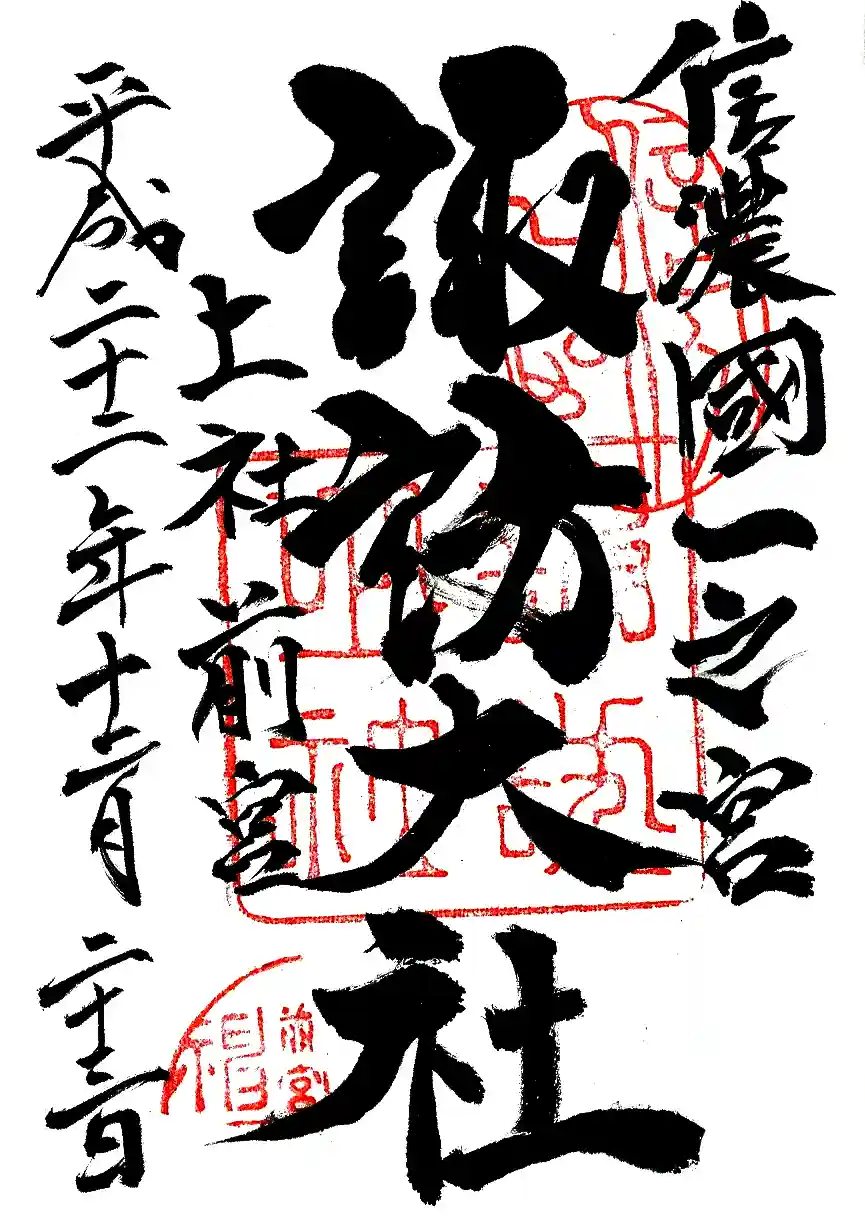 信濃國一之宮
諏訪大社
上社前宮
平成二十二年十二月二十三日
前宮